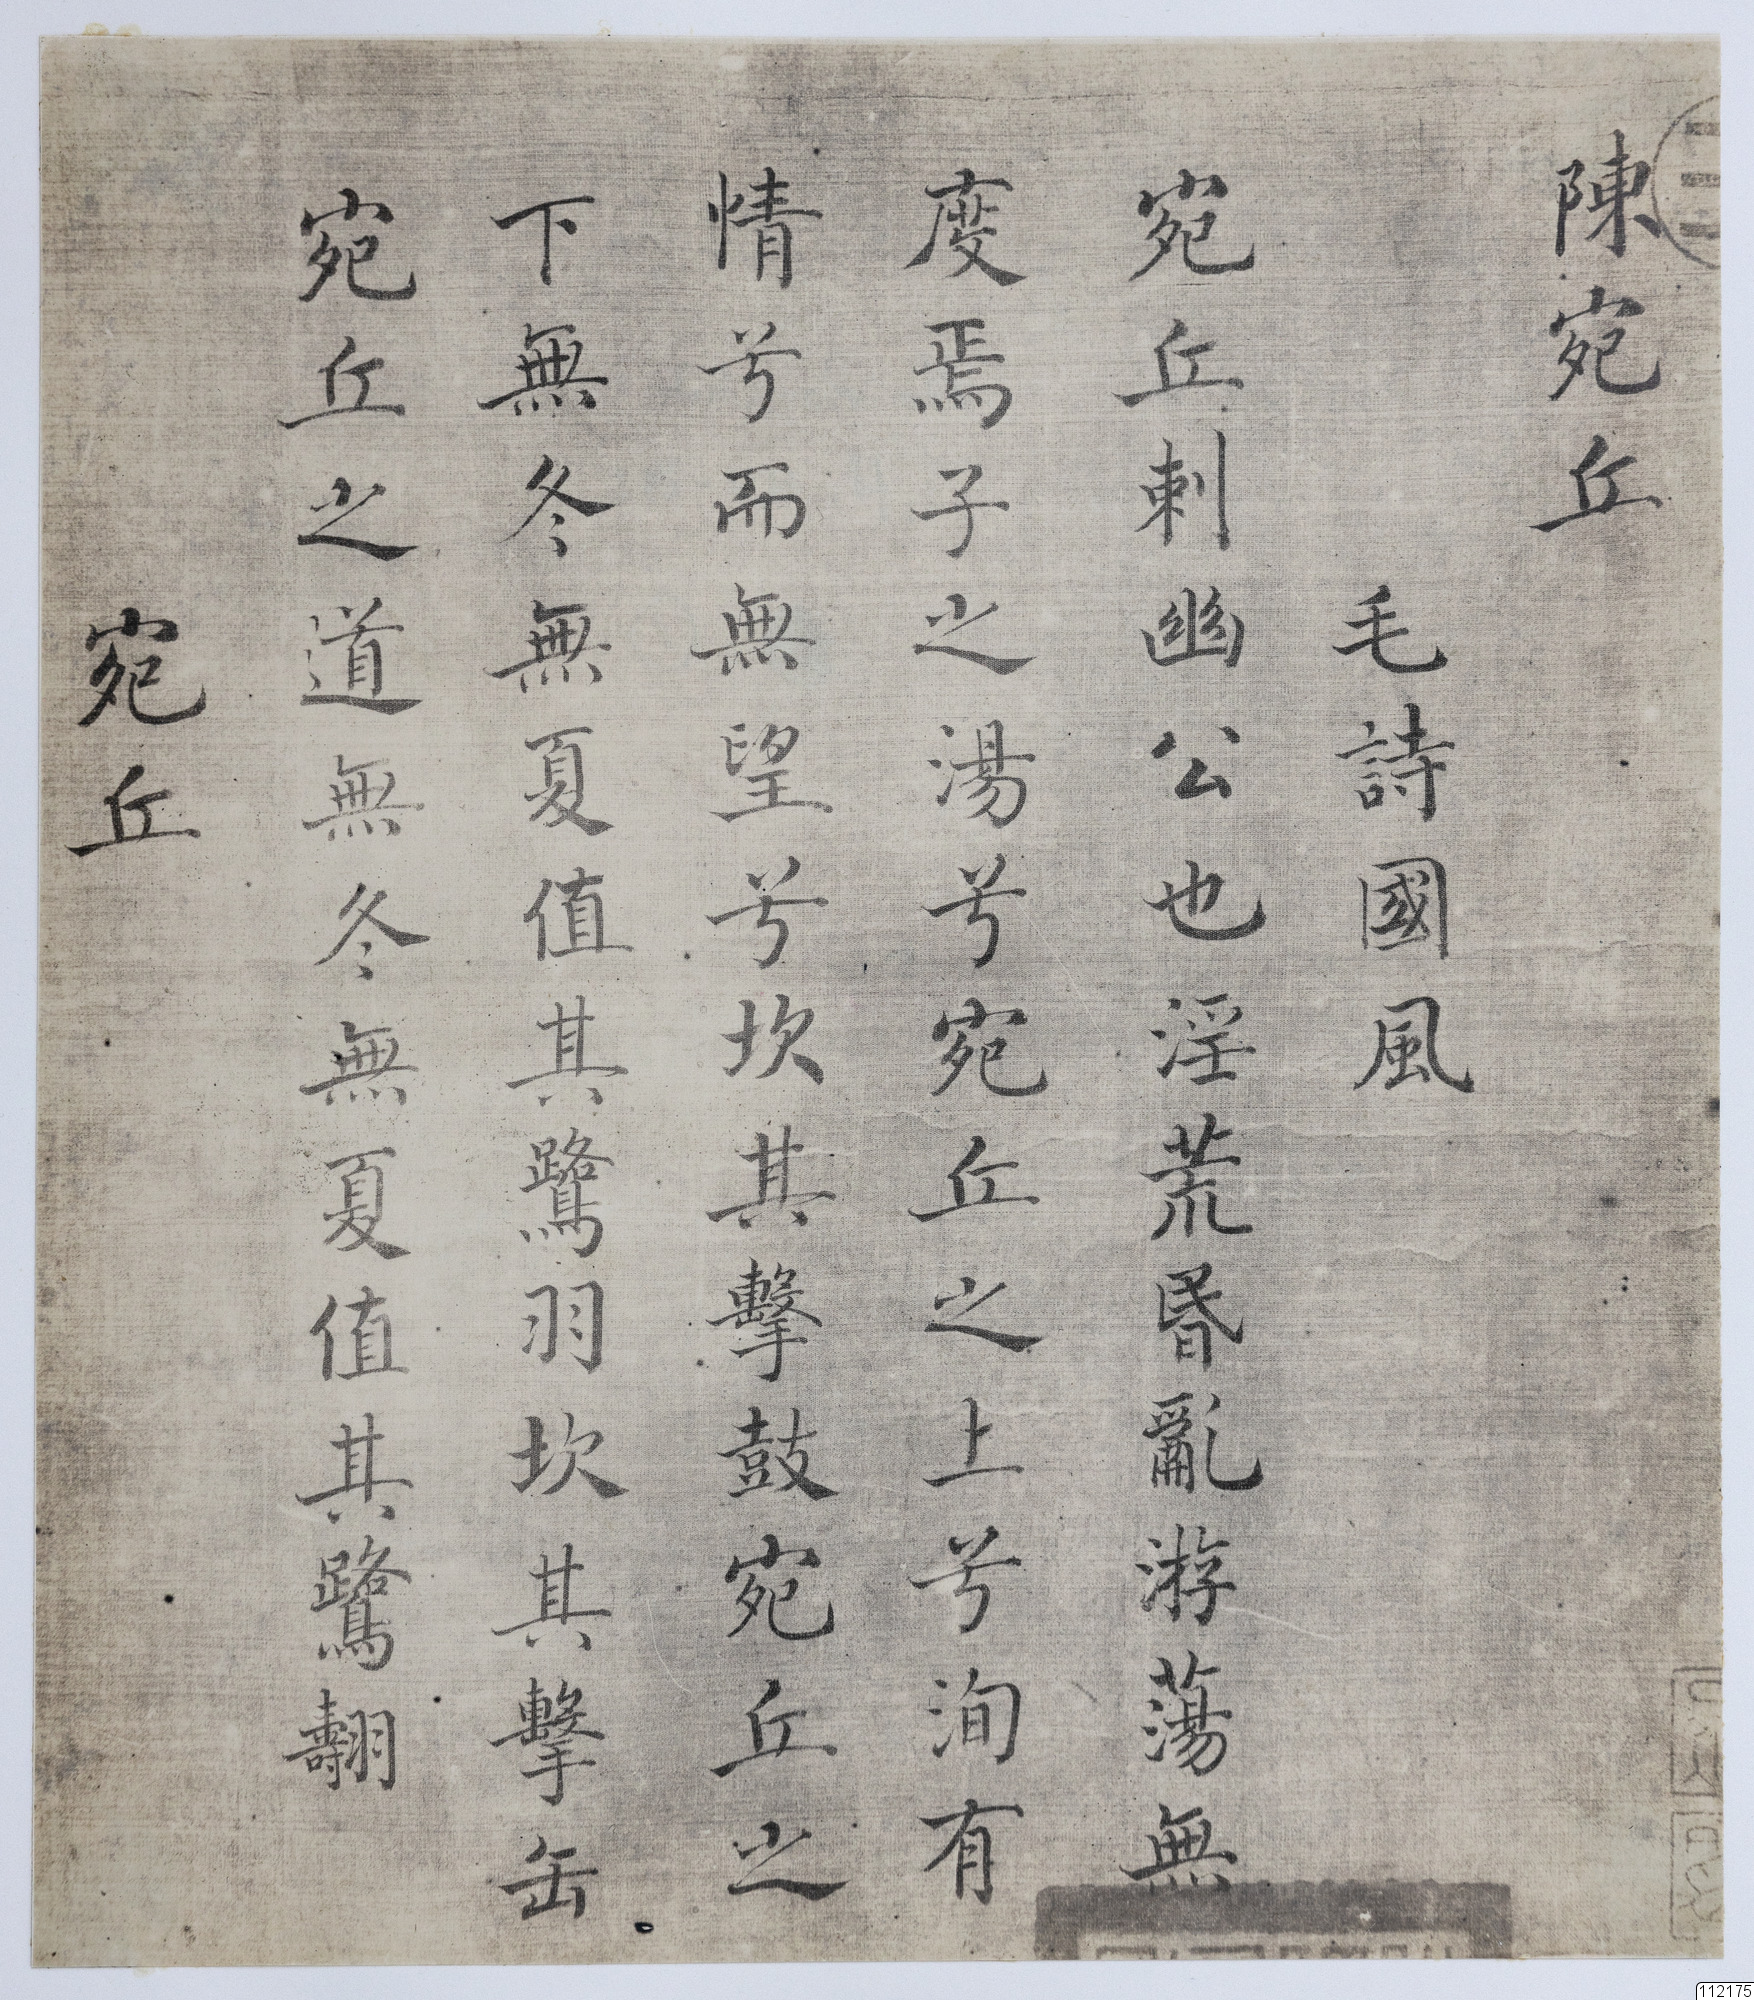 陳宛丘
毛詩國風
宛丘刺幽公也淫荒昬亂游蕩無
度焉子之湯兮宛丘之上兮洵有
情兮而無望兮坎其擊鼓宛丘之
下無冬無夏值其鷺羽坎其擊缶
宛丘之道無冬無夏值其鷺翿
宛丘
112175